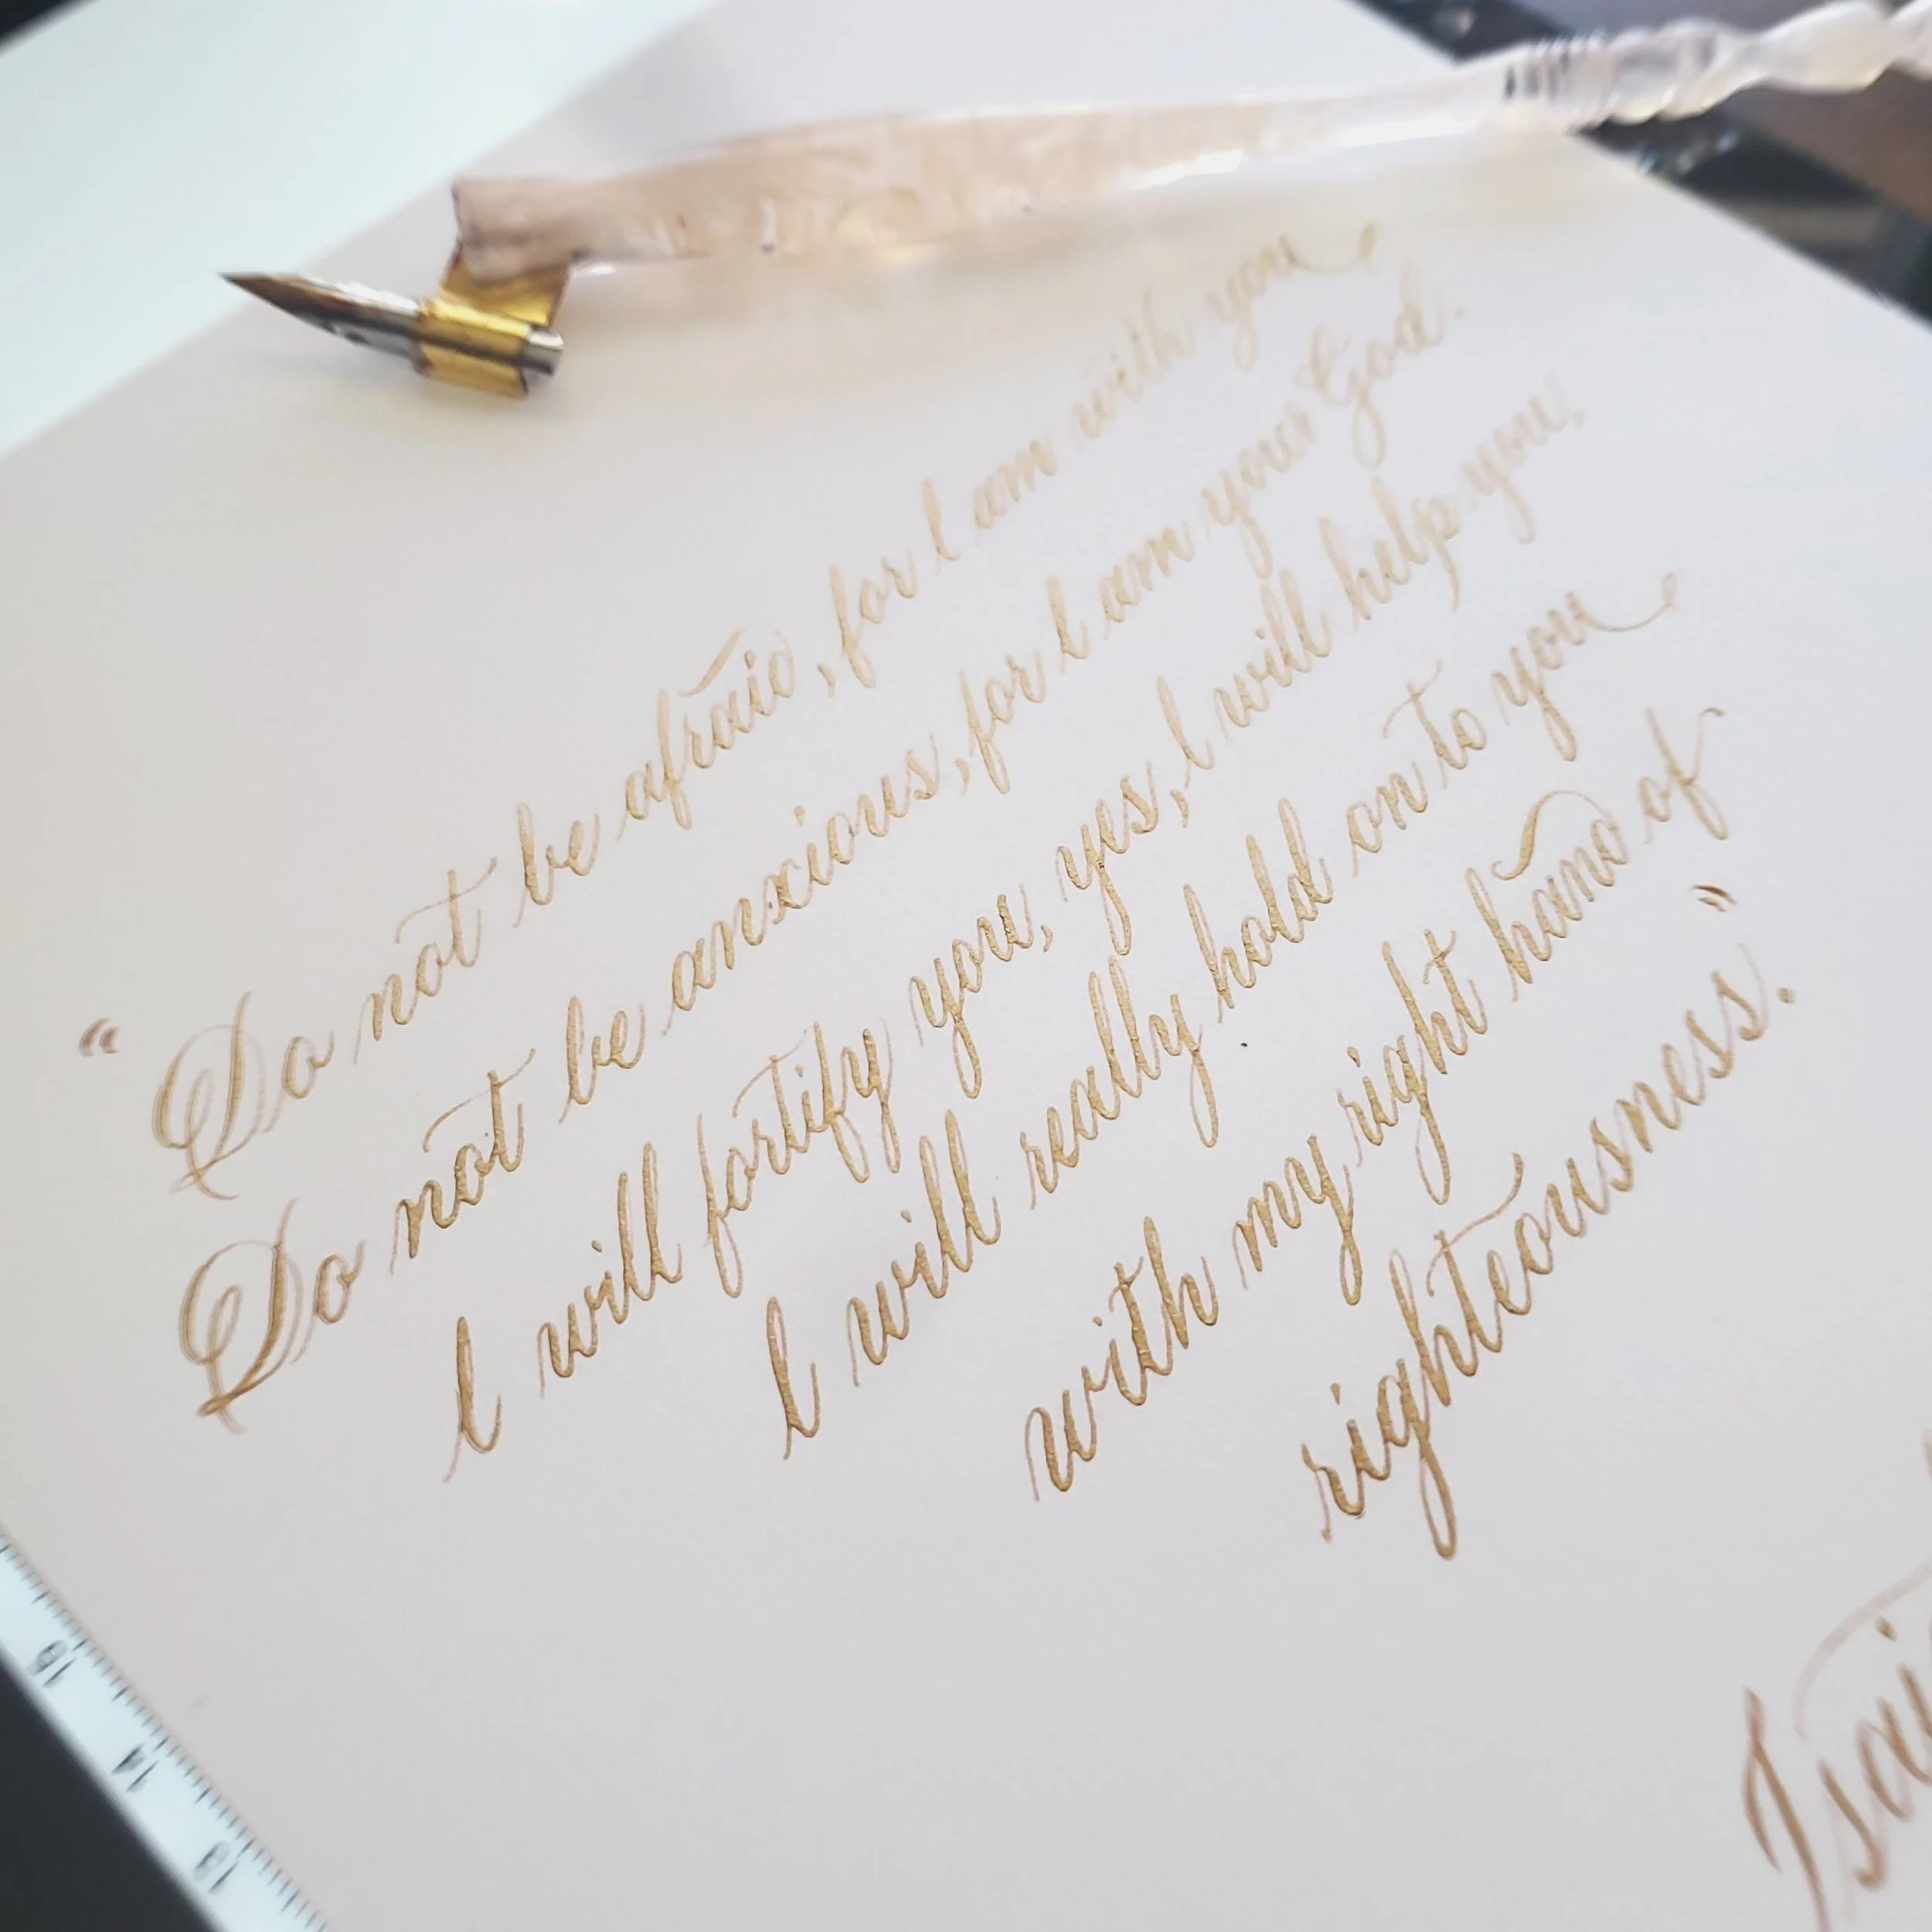 “Do not be afraid, for I am with you
Do not be anxious, for I am your God.
I will fortify you, yes, I will help you,
I will really hold on to you
with my right hand of
righteousness.”
15
14
13